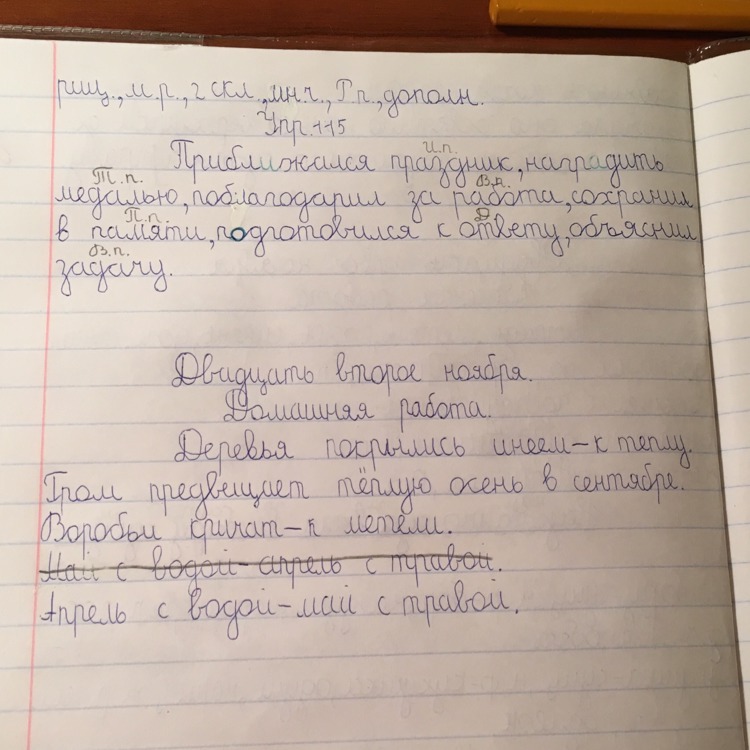 рищ., м.р., 2 скл., мн.ч., Т.п., дополн.
Упр.115
И.п.
Приближался праздник, наградить
Т.п. В.п.
медалью, поблагодарил за работа, сохранил
П.п. Д
в памяти, подготовился к ответу, объяснил
В.п.
задачу.
Двидцать второе ноября.
Домашняя работа.
Деревья покрылись инеем-к теплу.
Гром предвещает тёплую осень в сентябре.
Воробьи кричат-к метели.
Май с водой-апрель с травой.
Апрель с водой-май с травой.